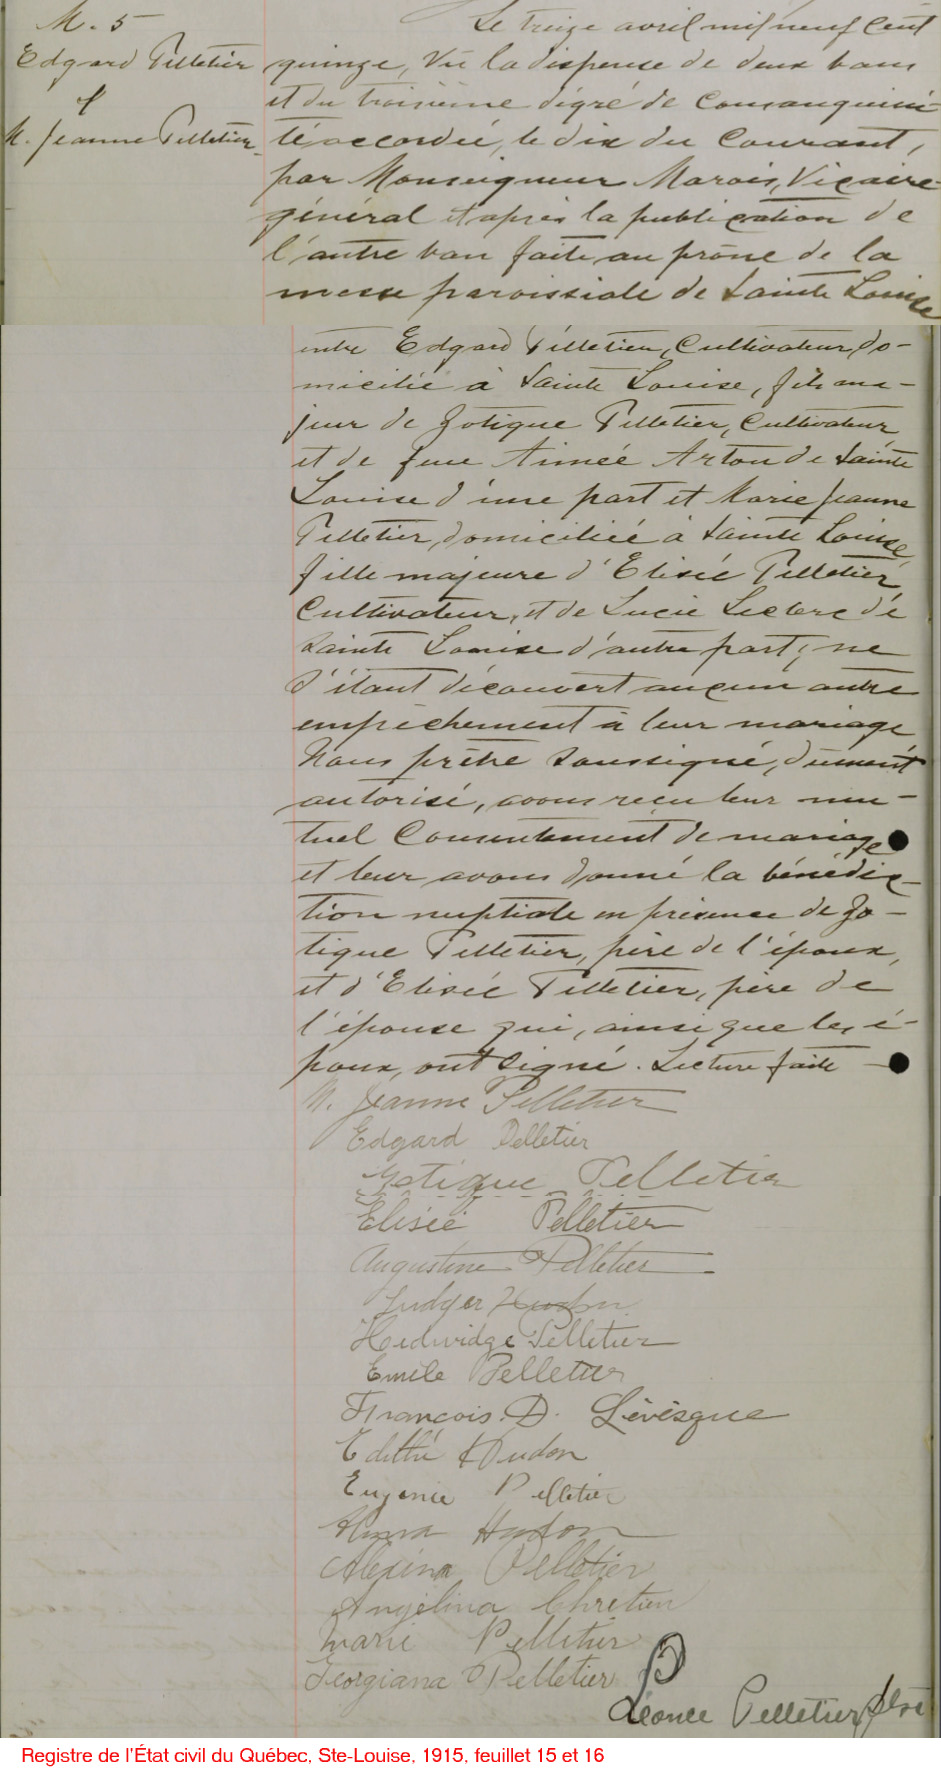 M. 5
Edgard Pelletier
&
M. Jeanne Pelletier
Le treize avril mil neuf cent
quinze, Vu la dispense de deux bans
et du troisième dégré de consanguini-
té accordée, le dix du Courant,
par Monseigneur Marois, Vicaire-
général et après la publication de
l'autre ban faite au prône de la
messe paroissiale de Sainte Louise
entre Edgard Pelletier, Cultivateur, do-
micilié à Sainte Louise, fils ma-
jeur de Zotique Pelletier, Cultivateur
et de feue Aimée Arton de Sainte
Louise d'une part et Marie Jeanne
Pelletier, domiciliée à Sainte Louise,
fille majeure d'Elisée Pelletier
Cultivateur, et de Lucie Leclerc de
Sainte Louise d'autre part; ne
s'étant découvert aucun autre
empêchement à leur mariage,
Nous prêtre soussigné, dûment
autorisé, avons reçu leur mu-
tuel Consentement de mariage
et leur avons donné la bénédic-
tion nuptiale en présence de Zo-
tique Pelletier, père de l'époux,
et d'Elisée Pelletier, père de
l'épouse qui, ainsi que les é-
poux, ont signé. Lecture faite
M. Jeanne Pelletier
Edgard Pelletier
Zotique Pelletier
Elisée Pelletier
Augustine Pelletier
Ludger Hudon
Hedwidge Pelletier
Emile Pelletier
François. D. Lévèsque
Edithe Hudon
Eugenie Pelletier
Hudon
Alexina Pelletier
Angélina Chretien
Marie Pelletier
Georgiana Pelletier
Léonce Pelletier, Ptre
Registre de l'État civil du Québec, Ste-Louise, 1915, feuillet 15 et 16